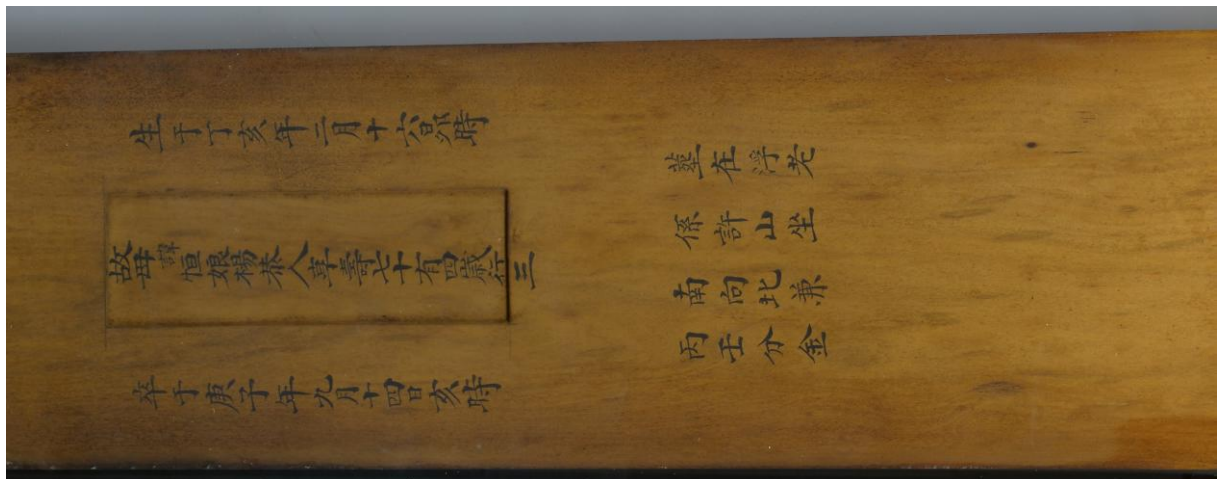 生于丁亥年二月十六日卯時
故母諱恒娘楊恭人享壽七十有四歲行三
卒于庚子年九月十四日亥時
塟在浮
係許山坐
南向北兼
丙壬分金